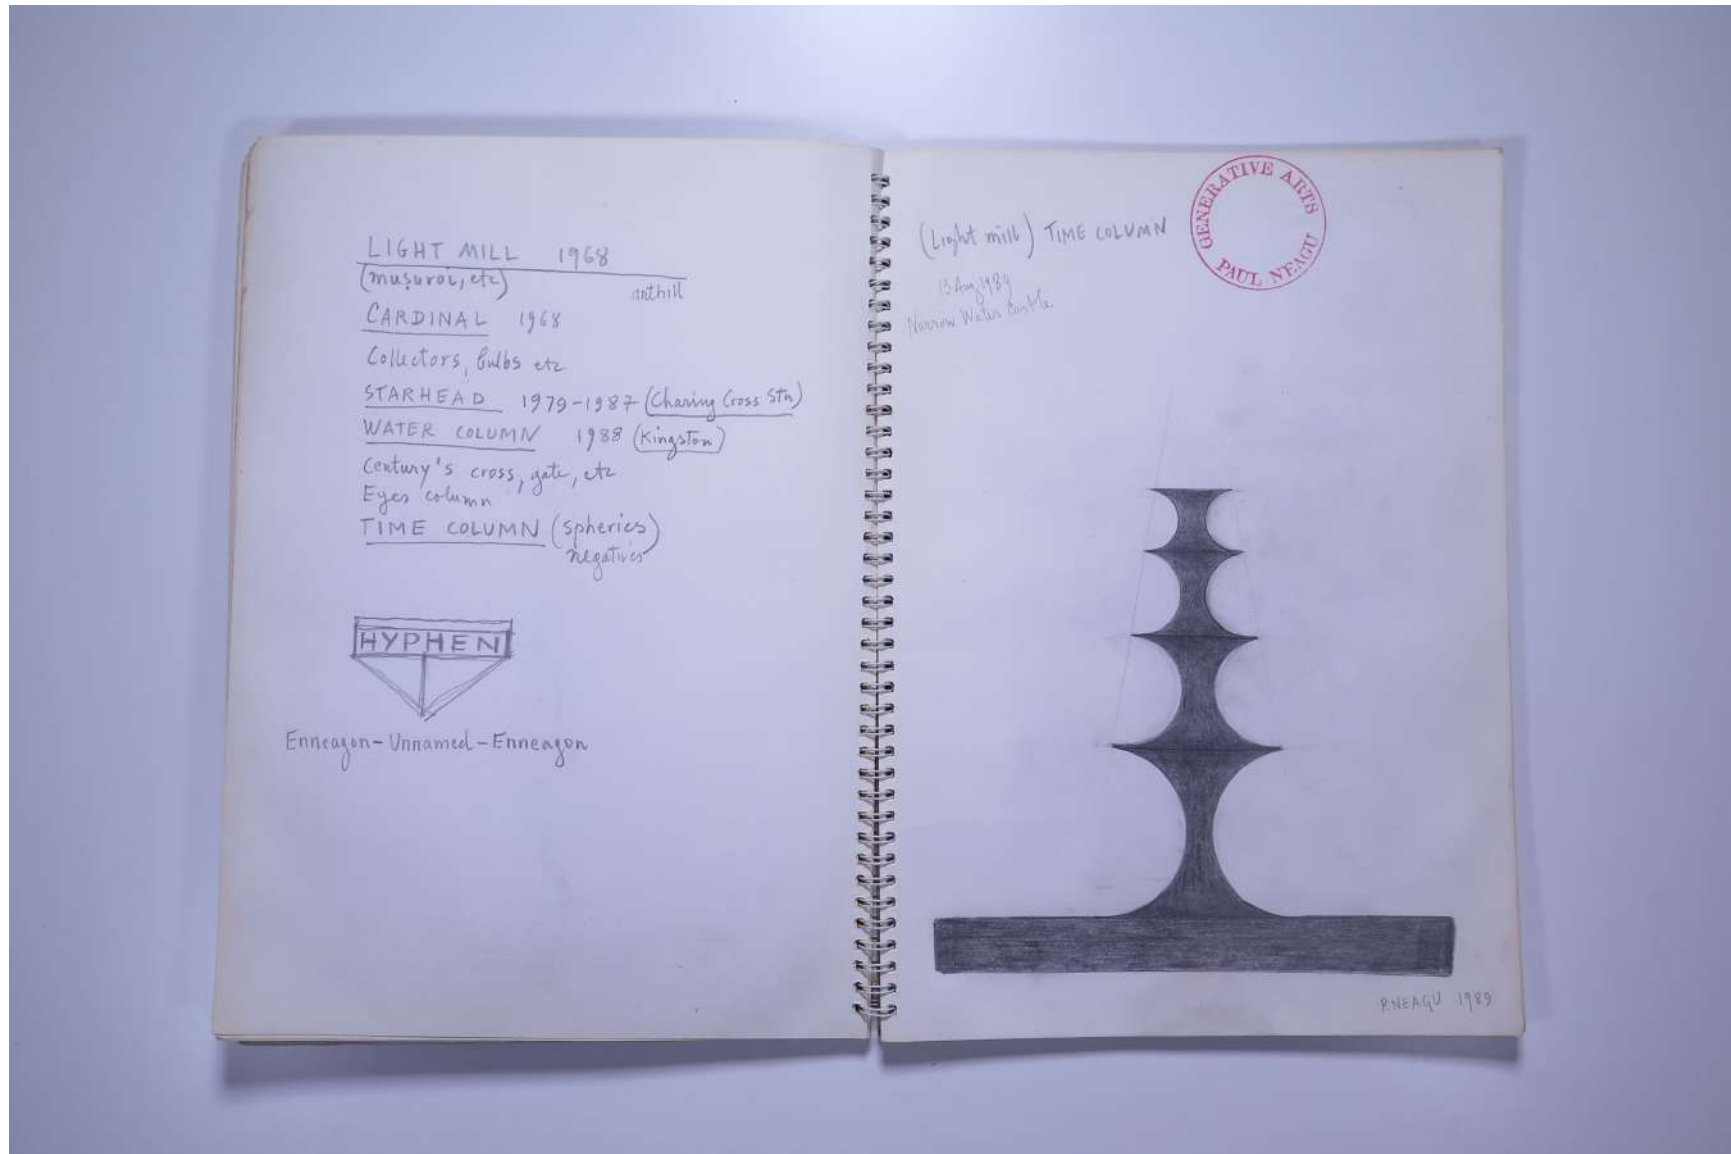 LIGHT MILL 1968
(mușuroi, etc)
anthill
CARDINAL 1968
Collectors, bulbs etc
STARHEAD 1979-1987 (Charing Cross Stn)
WATER COLUMN 1988 (Kingston)
Century's cross, gate, etc
Eyes column
TIME COLUMN (spherics)
negatives
HYPHEN
Enneagon-Unnamed-Enneagon
(Light mill) TIME COLUMN
13 Aug 1989
Narrow Water Castle
GENERATIVE ARTS
PAUL NEAGU
P.NEAGU 1989